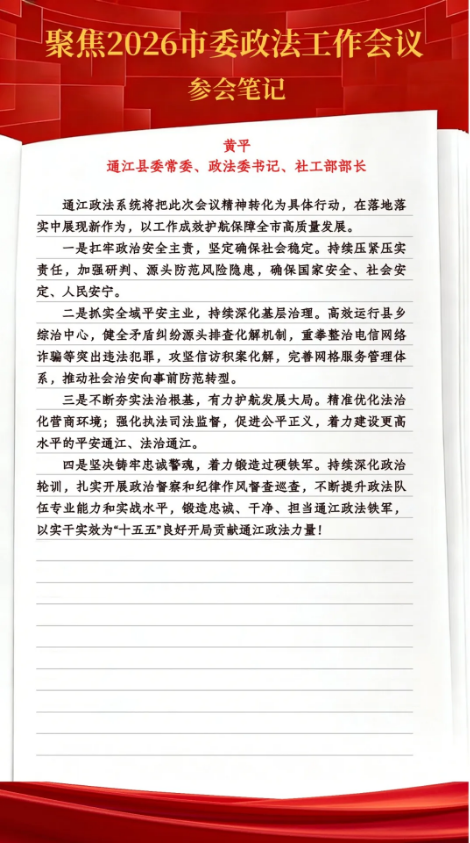 聚焦2026市委政法工作会议
参会笔记
黄平
通江县委常委、政法委书记、社工部部长
通江政法系统将把此次会议精神转化为具体行动，在落地落
实中展现新作为，以工作成效护航保障全市高质量发展。
一是扛牢政治安全主责，坚定确保社会稳定。持续压紧压实
责任，加强研判、源头防范风险隐患，确保国家安全、社会安
定、人民安宁。
二是抓实全域平安主业，持续深化基层治理。高效运行县乡
综治中心，健全矛盾纠纷源头排查化解机制，重拳整治电信网络
诈骗等突出违法犯罪，攻坚信访积案化解，完善网格服务管理体
系，推动社会治安向事前防范转型。
三是不断夯实法治根基，有力护航发展大局。精准优化法治
化营商环境；强化执法司法监督，促进公平正义，着力建设更高
水平的平安通江、法治通江。
四是坚决铸牢忠诚警魂，着力锻造过硬铁军。持续深化政治
轮训，扎实开展政治督察和纪律作风督查巡查，不断提升政法队
伍专业能力和实战水平，锻造忠诚、干净、担当通江政法铁军，
以实干实效为“十五五”良好开局贡献通江政法力量！